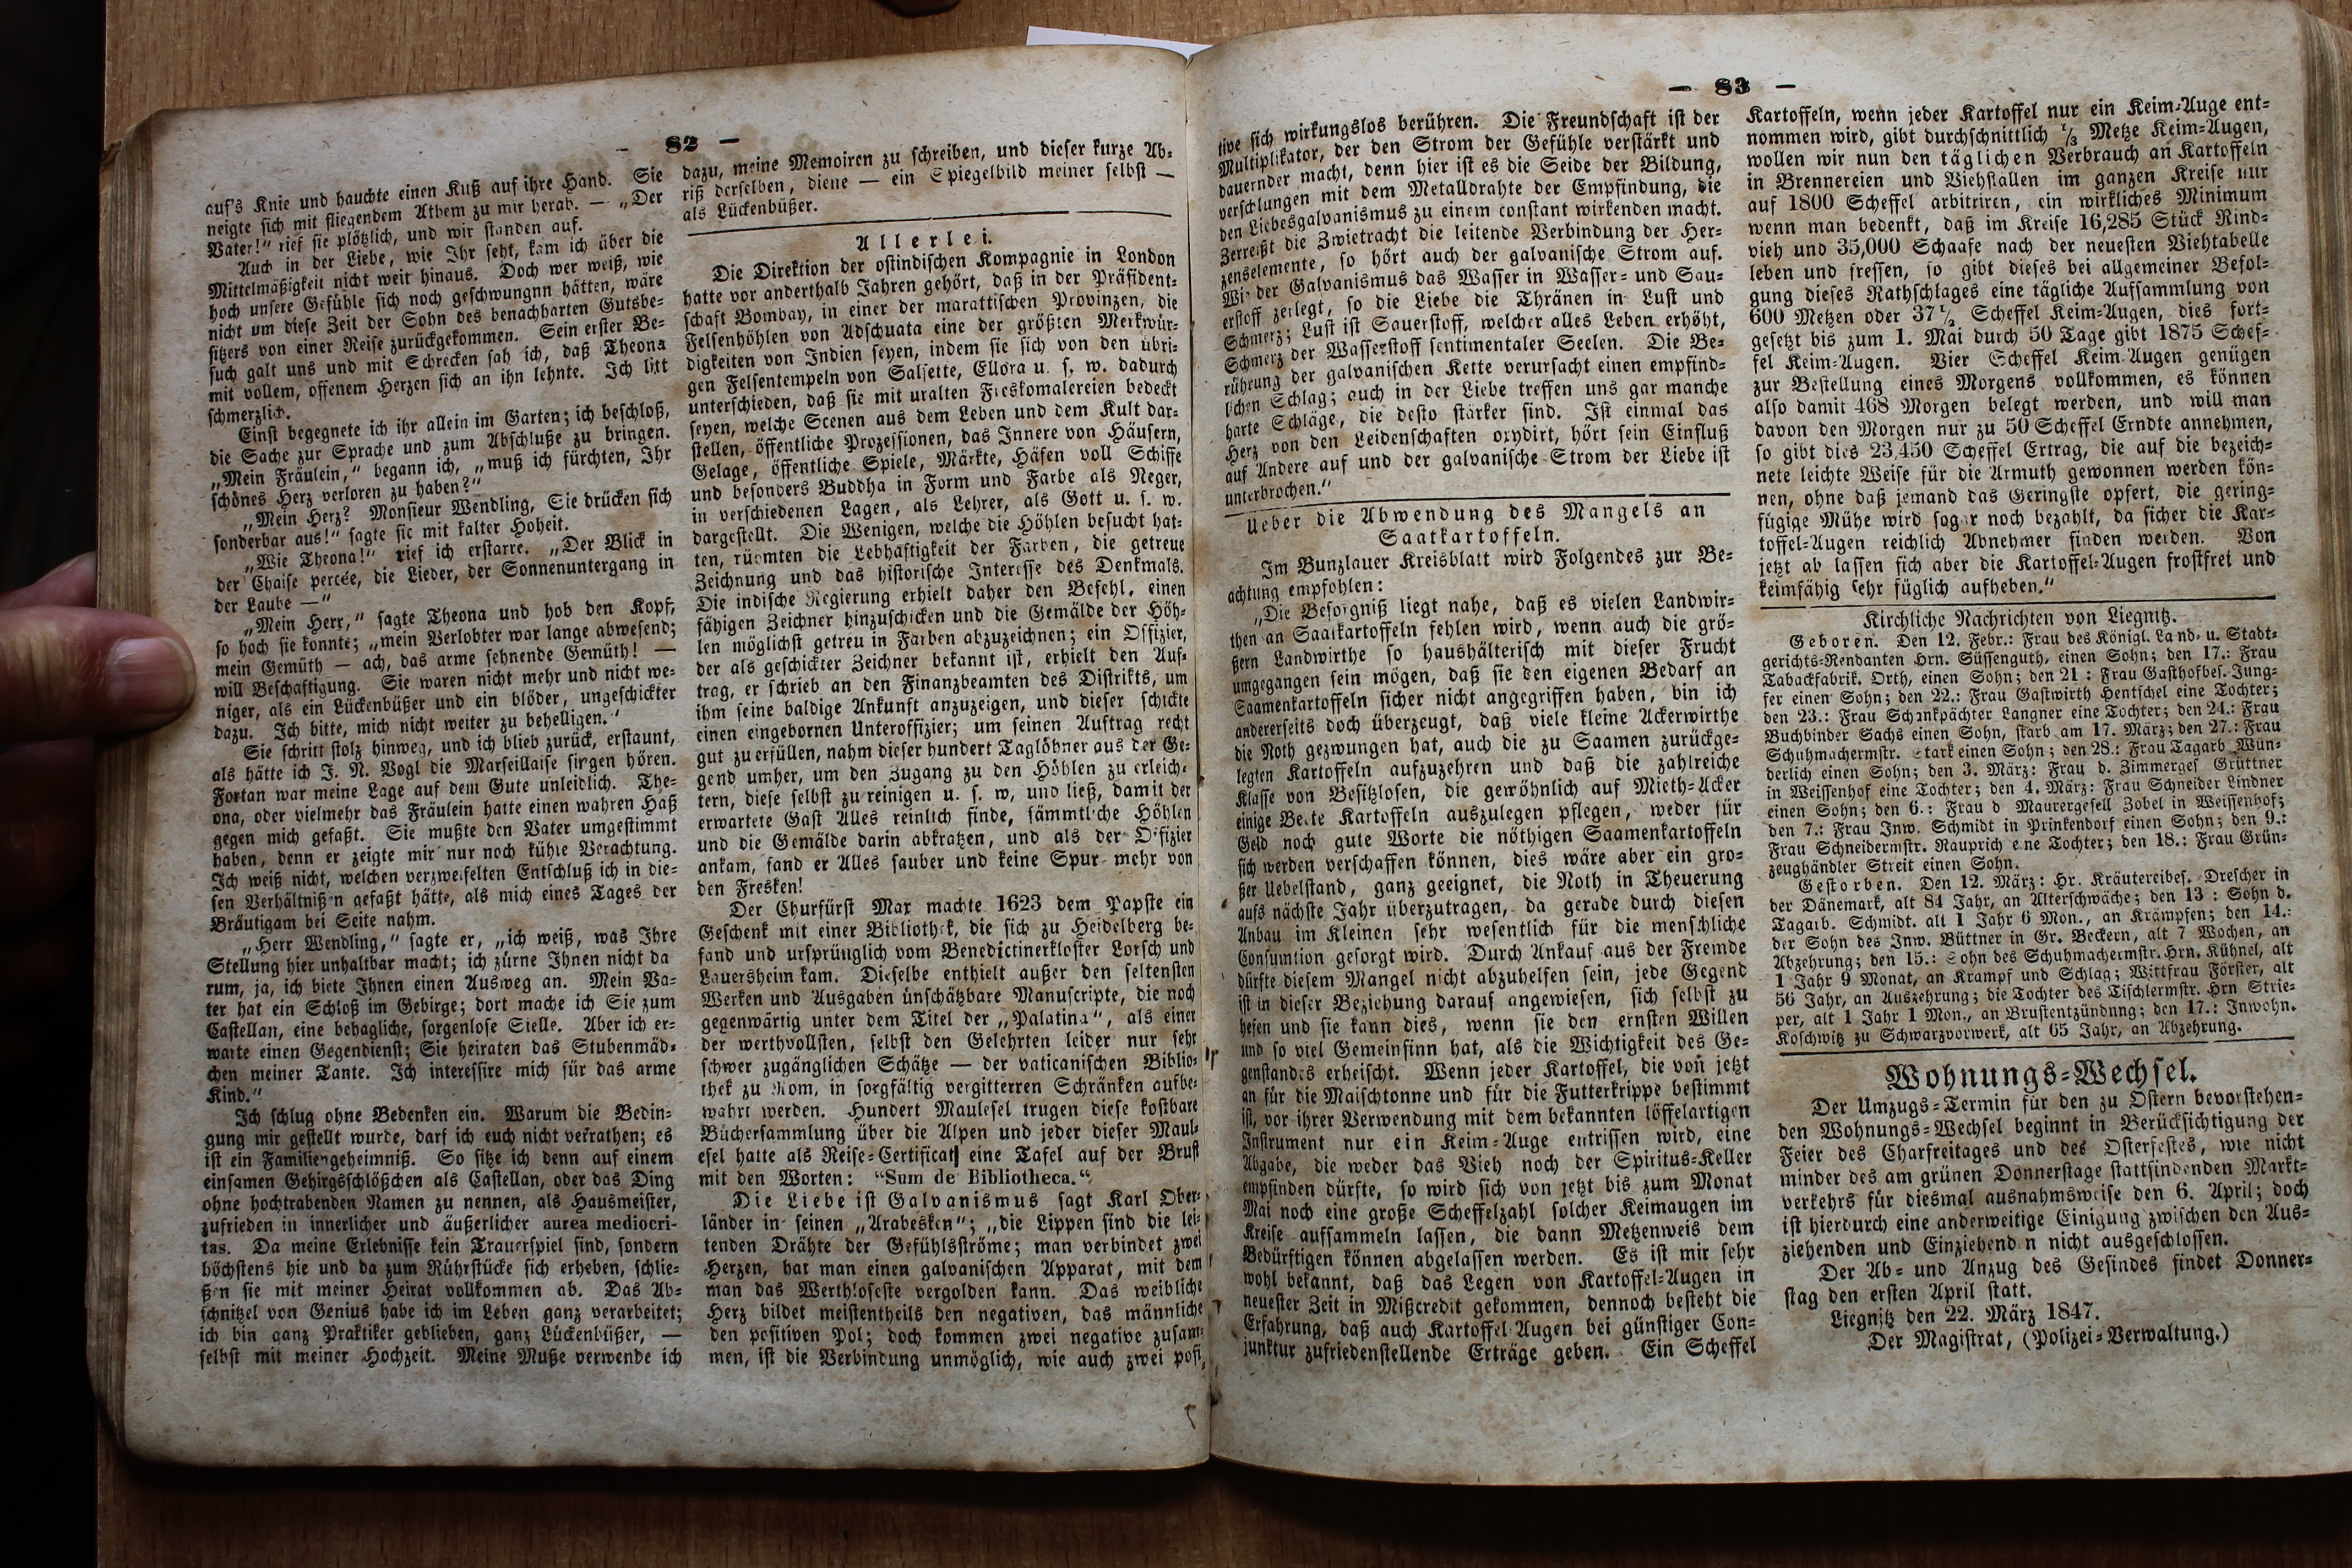 — 82 —
auf's Knie und hauchte einen Kuß auf ihre Hand. Sie
neigte sich mit fliegendem Athem zu mir herab. — „Der
Vater!“ rief sie plötzlich, und wir standen auf.
Auch in der Liebe, wie Ihr seht, kam ich über die
Mittelmäßigkeit nicht weit hinaus. Doch wer weiß, wie
hoch unsere Gefühle sich noch geschwungnn hätten, wäre
nicht um diese Zeit der Sohn des benachbarten Gutsbe-
sitzers von einer Reise zurückgekommen. Sein erster Be-
such galt uns und mit Schrecken sah ich, daß Theona
mit vollem, offenem Herzen sich an ihn lehnte. Ich litt
schmerzlich.
Einst begegnete ich ihr allein im Garten; ich beschloß,
die Sache zur Sprache und zum Abschluße zu bringen.
„Mein Fräulein,“ begann ich, „muß ich fürchten, Ihr
schönes Herz verloren zu haben?“
„Mein Herz? Monsieur Wendling, Sie drücken sich
sonderbar aus!“ sagte sie mit kalter Hoheit.
„Wie Theona!“ rief ich erstarre. „Der Blick in
der Chaise percée, die Lieder, der Sonnenuntergang in
der Laube —“
„Mein Herr,“ sagte Theona und hob den Kopf,
so hoch sie konnte; „mein Verlobter war lange abwesend;
mein Gemüth — ach, das arme sehnende Gemüth! —
will Beschaftigung. Sie waren nicht mehr und nicht we-
niger, als ein Lückenbüßer und ein blöder, ungeschickter
dazu. Ich bitte, mich nicht weiter zu behelligen.“
Sie schritt stolz hinweg, und ich blieb zurück, erstaunt,
als hätte ich J. N. Vogl die Marseillaise singen hören.
Fortan war meine Lage auf dem Gute unleidlich. The-
ona, oder vielmehr das Fräulein hatte einen wahren Haß
gegen mich gefaßt. Sie mußte den Vater umgestimmt
haben, denn er zeigte mir nur noch kühle Verachtung.
Ich weiß nicht, welchen verzweifelten Entschluß ich in die-
sen Verhältnißen gefaßt hätte, als mich eines Tages der
Bräutigam bei Seite nahm.
„Herr Wendling,“ sagte er, „ich weiß, was Ihre
Stellung hier unhaltbar macht; ich zürne Ihnen nicht da
rum, ja, ich biete Ihnen einen Ausweg an. Mein Va-
ter hat ein Schloß im Gebirge; dort mache ich Sie zum
Castellan, eine behagliche, sorgenlose Stelle. Aber ich er-
warte einen Gegendienst; Sie heiraten das Stubenmäd-
chen meiner Tante. Ich interessire mich für das arme
Kind.“
Ich schlug ohne Bedenken ein. Warum die Bedin-
gung mir gestellt wurde, darf ich euch nicht verrathen; es
ist ein Familiengeheimniß. So sitze ich denn auf einem
einsamen Gehirgsschlößchen als Castellan, oder das Ding
ohne hochtrabenden Namen zu nennen, als Hausmeister,
zufrieden in innerlicher und äußerlicher aurea mediocri-
tas. Da meine Erlebnisse kein Trauerspiel sind, sondern
höchstens hie und da zum Rührstücke sich erheben, schlie-
ßen sie mit meiner Heirat vollkommen ab. Das Ab-
schnitzel von Genius habe ich im Leben ganz verarbeitet;
ich bin ganz Praktiker geblieben, ganz Lückenbüßer, —
selbst mit meiner Hochzeit. Meine Muße verwende ich
dazu, meine Memoiren zu schreiben, und dieser kurze Ab-
riß derselben, diene — ein Spiegelbild meiner selbst —
als Lückenbüßer.
Allerlei.
Die Direktion der ostindischen Kompagnie in London
hatte vor anderthalb Jahren gehört, daß in der Präsident-
schaft Bombay, in einer der marattischen Provinzen, die
Felsenhöhlen von Adschuata eine der größten Merkwür-
digkeiten von Indien seyen, indem sie sich von den übri-
gen Felsentempeln von Salsette, Ellora u. s. w. dadurch
unterschieden, daß sie mit uralten Freskomalereien bedeckt
seyen, welche Scenen aus dem Leben und dem Kult dar-
stellen, öffentliche Prozessionen, das Innere von Häusern,
Gelage, öffentliche Spiele, Märkte, Häfen voll Schiffe
und besonders Buddha in Form und Farbe als Neger,
in verschiedenen Lagen, als Lehrer, als Gott u. s. w.
dargestellt. Die Wenigen, welche die Höhlen besucht hat-
ten, rühmten die Lebhaftigkeit der Farben, die getreue
Zeichnung und das historische Interesse des Denkmals.
Die indische Regierung erhielt daher den Befehl, einen
fähigen Zeichner hinzuschicken und die Gemälde der Höh-
len möglichst getreu in Farben abzuzeichnen; ein Offizier,
der als geschickter Zeichner bekannt ist, erhielt den Auf-
trag, er schrieb an den Finanzbeamten des Distrikts, um
ihm seine baldige Ankunft anzuzeigen, und dieser schickte
einen eingebornen Unteroffizier; um seinen Auftrag recht
gut zu erfüllen, nahm dieser hundert Taglöhner aus der Ge-
gend umher, um den Zugang zu den Höhlen zu erleich-
tern, diese selbst zu reinigen u. s. w, und ließ, damit der
erwartete Gast Alles reinlich finde, sämmtliche Höhlen
und die Gemälde darin abkratzen, und als der Offizier
ankam, fand er Alles sauber und keine Spur mehr von
den Fresken!
Der Churfürst Max machte 1623 dem Papste ein
Geschenk mit einer Bibliothek, die sich zu Heidelberg be-
fand und ursprünglich vom Benedictinerkloster Lorsch und
Lauersheim kam. Dieselbe enthielt außer den seltensten
Werken und Ausgaben unschätzbare Manuscripte, die noch
gegenwärtig unter dem Titel der „Palatina“, als einer
der werthvollsten, selbst den Gelehrten leider nur sehr
schwer zugänglichen Schätze — der vaticanischen Biblio-
thek zu Rom, in sorgfältig vergitterren Schränken aufbe-
wahrt werden. Hundert Maulesel trugen diese kostbare
Büchersammlung über die Alpen und jeder dieser Maul-
esel hatte als Reise-Certificat eine Tafel auf der Brust
mit den Worten: “Sum de Bibliotheca.“
Die Liebe ist Galvanismus sagt Karl Ober-
länder in seinen „Arabesken“; „die Lippen sind die lei-
tenden Drähte der Gefühlsströme; man verbindet zwei
Herzen, hat man einen galvanischen Apparat, mit dem
man das Werthloseste vergolden kann. Das weibliche
Herz bildet meistentheils den negativen, das männliche
den positiven Pol; doch kommen zwei negative zusam-
men, ist die Verbindung unmöglich, wie auch zwei posi-
— 83 —
tive sich wirkungslos berühren. Die Freundschaft ist der
Multiplikator, der den Strom der Gefühle verstärkt und
dauernder macht, denn hier ist es die Seide der Bildung,
verschlungen mit dem Metalldrahte der Empfindung, die
den Liebesgalvanismus zu einem constant wirkenden macht.
Zerreißt die Zwietracht die leitende Verbindung der Her-
zenselemente, so hört auch der galvanische Strom auf.
Wie der Galvanismus das Wasser in Wasser- und Sau-
erstoff zerlegt, so die Liebe die Thränen in Lust und
Schmerz; Lust ist Sauerstoff, welcher alles Leben erhöht,
Schmerz der Wasserstoff sentimentaler Seelen. Die Be-
rührung der galvanischen Kette verursacht einen empfind-
lichen Schlag; auch in der Liebe treffen uns gar manche
harte Schläge, die desto stärker sind. Ist einmal das
Herz von den Leidenschaften oxydirt, hört sein Einfluß
auf Andere auf und der galvanische Strom der Liebe ist
unterbrochen.“
Ueber die Abwendung des Mangels an
Saatkartoffeln.
Im Bunzlauer Kreisblatt wird Folgendes zur Be-
achtung empfohlen:
„Die Besorgniß liegt nahe, daß es vielen Landwir-
then an Saatkartoffeln fehlen wird, wenn auch die grö-
ßern Landwirthe so haushälterisch mit dieser Frucht
umgegangen sein mögen, daß sie den eigenen Bedarf an
Saamenkartoffeln sicher nicht angegriffen haben, bin ich
andererseits doch überzeugt, daß viele kleine Ackerwirthe
die Noth gezwungen hat, auch die zu Saamen zurückge-
legten Kartoffeln aufzuzehren und daß die zahlreiche
Klasse von Besitzlosen, die gewöhnlich auf Mieth-Acker
einige Beete Kartoffeln auszulegen pflegen, weder für
Geld noch gute Worte die nöthigen Saamenkartoffeln
sich werden verschaffen können, dies wäre aber ein gro-
ßer Uebelstand, ganz geeignet, die Noth in Theuerung
aufs nächste Jahr überzutragen, da gerade durch diesen
Anbau im Kleinen sehr wesentlich für die menschliche
Consumtion gesorgt wird. Durch Ankauf aus der Fremde
dürfte diesem Mangel nicht abzuhelfen sein, jede Gegend
ist in dieser Beziehung darauf angewiesen, sich selbst zu
hefen und sie kann dies, wenn sie den ernsten Willen
und so viel Gemeinsinn hat, als die Wichtigkeit des Ge-
genstandes erheischt. Wenn jeder Kartoffel, die von jetzt
an für die Maischtonne und für die Futterkrippe bestimmt
ist, vor ihrer Verwendung mit dem bekannten löffelartigen
Instrument nur ein Keim-Auge entrissen wird, eine
Abgabe, die weder das Vieh noch der Spiritus-Keller
empfinden dürfte, so wird sich von jetzt bis zum Monat
Mai noch eine große Scheffelzahl solcher Keimaugen im
Kreise aufsammeln lassen, die dann Metzenweis dem
Bedürftigen können abgelassen werden. Es ist mir sehr
wohl bekannt, daß das Legen von Kartoffel-Augen in
neuester Zeit in Mißcredit gekommen, dennoch besteht die
Erfahrung, daß auch Kartoffel-Augen bei günstiger Con-
junktur zufriedenstellende Erträge geben. Ein Scheffel
Kartoffeln, wenn jeder Kartoffel nur ein Keim-Auge ent-
nommen wird, gibt durchschnittlich 1/3 Metze Keim-Augen,
wollen wir nun den täglichen Verbrauch an Kartoffeln
in Brennereien und Viehställen im ganzen Kreise nur
auf 1800 Scheffel arbitriren, ein wirkliches Minimum
wenn man bedenkt, daß im Kreise 16,285 Stück Rind-
vieh und 35,000 Schaafe nach der neuesten Viehtabelle
leben und fressen, so gibt dieses bei allgemeiner Befol-
gung dieses Rathschlages eine tägliche Aufsammlung von
600 Metzen oder 37 1/2 Scheffel Keim-Augen, dies fort-
gesetzt bis zum 1. Mai durch 50 Tage gibt 1875 Schef-
fel Keim-Augen. Vier Scheffel Keim-Augen genügen
zur Bestellung eines Morgens vollkommen, es können
also damit 468 Morgen belegt werden, und will man
davon den Morgen nur zu 50 Scheffel Erndte annehmen,
so gibt dies 23,450 Scheffel Ertrag, die auf die bezeich-
nete leichte Weise für die Armuth gewonnen werden kön-
nen, ohne daß jemand das Geringste opfert, die gering-
fügige Mühe wird sogar noch bezahlt, da sicher die Kar-
toffel-Augen reichlich Abnehmer finden werden. Von
jetzt ab lassen sich aber die Kartoffel-Augen frostfrei und
keimfähig sehr füglich aufheben.“
Kirchliche Nachrichten von Liegnitz.
Geboren. Den 12. Febr.: Frau des Königl. Land- u. Stadt-
gerichts-Rendanten Hrn. Süssenguth, einen Sohn; den 17.: Frau
Tabackfabrik. Orth, einen Sohn; den 21: Frau Gasthofbes. Jung-
fer einen Sohn; den 22.: Frau Gastwirth Hentschel eine Tochter;
den 23.: Frau Schankpächter Langner eine Tochter; den 24.: Frau
Buchbinder Sachs einen Sohn, starb am 17. März; den 27.: Frau
Schuhmachermstr. Stark einen Sohn; den 28.: Frau Tagarb Wun-
derlich einen Sohn; den 3. März: Frau d. Zimmerges Grüttner
in Weissenhof eine Tochter; den 4. März: Frau Schneider Lindner
einen Sohn; den 6.: Frau d Maurergesell Zobel in Weissenhof;
den 7.: Frau Inw. Schmidt in Prinkendorf einen Sohn; den 9.:
Frau Schneidermstr. Rauprich eine Tochter; den 18.: Frau Grün-
zeughändler Streit einen Sohn.
Gestorben. Den 12. März: Hr. Kräutereibes. Drescher in
der Dänemark, alt 84 Jahr, an Alterschwäche; den 13: Sohn d.
Tagarb. Schmidt. alt 1 Jahr 6 Mon., an Krämpfen; den 14.:
der Sohn des Inw. Büttner in Gr. Beckern, alt 7 Wochen, an
Abzehrung; den 15.: Sohn des Schuhmachermstr. Hrn. Kühnel, alt
1 Jahr 9 Monat, an Krampf und Schlag; Wittfrau Förster, alt
56 Jahr, an Auszehrung; die Tochter des Tischlermstr. Hrn Strie-
per, alt 1 Jahr 1 Mon., an Brustentzündung; den 17.: Inwohn.
Koschwitz zu Schwarzvorwerk, alt 65 Jahr, an Abzehrung.
Wohnungs-Wechsel.
Der Umzugs-Termin für den zu Ostern bevorstehen-
den Wohnungs-Wechsel beginnt in Berücksichtigung der
Feier des Charfreitages und des Osterfestes, wie nicht
minder des am grünen Donnerstage stattfindenden Markt-
verkehrs für diesmal ausnahmsweise den 6. April; doch
ist hierdurch eine anderweitige Einigung zwischen den Aus-
ziehenden und Einziehenden nicht ausgeschlossen.
Der Ab- und Anzug des Gesindes findet Donner-
stag den ersten April statt.
Liegnitz den 22. März 1847.
Der Magistrat, (Polizei-Verwaltung.)